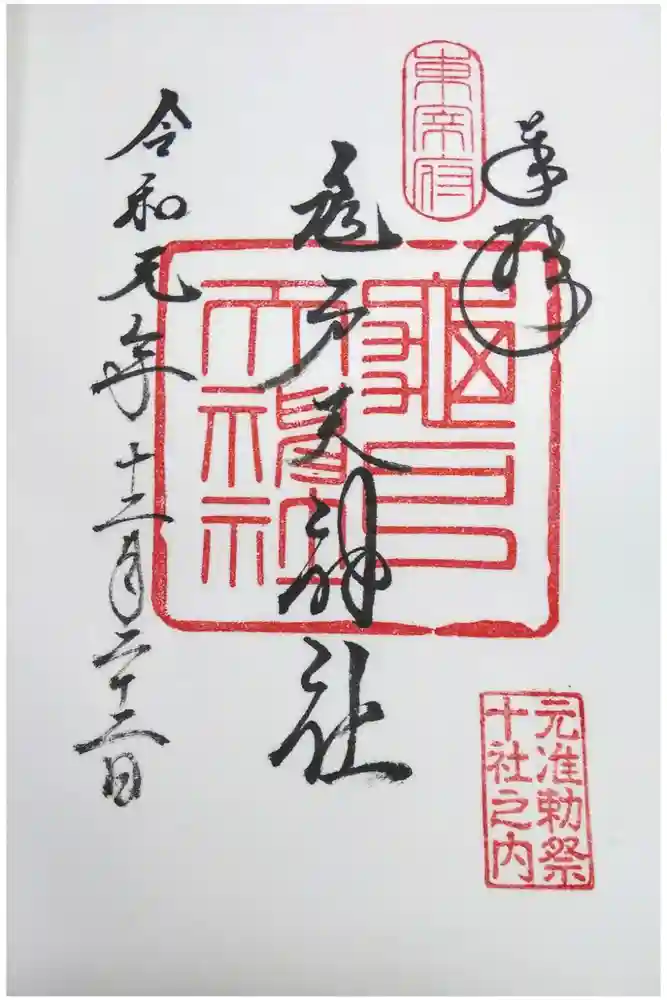 奉拝
東帝府
亀戸天神社
龜戸
天神社
令和元年十二月二十二日
元准勅祭
十社之内